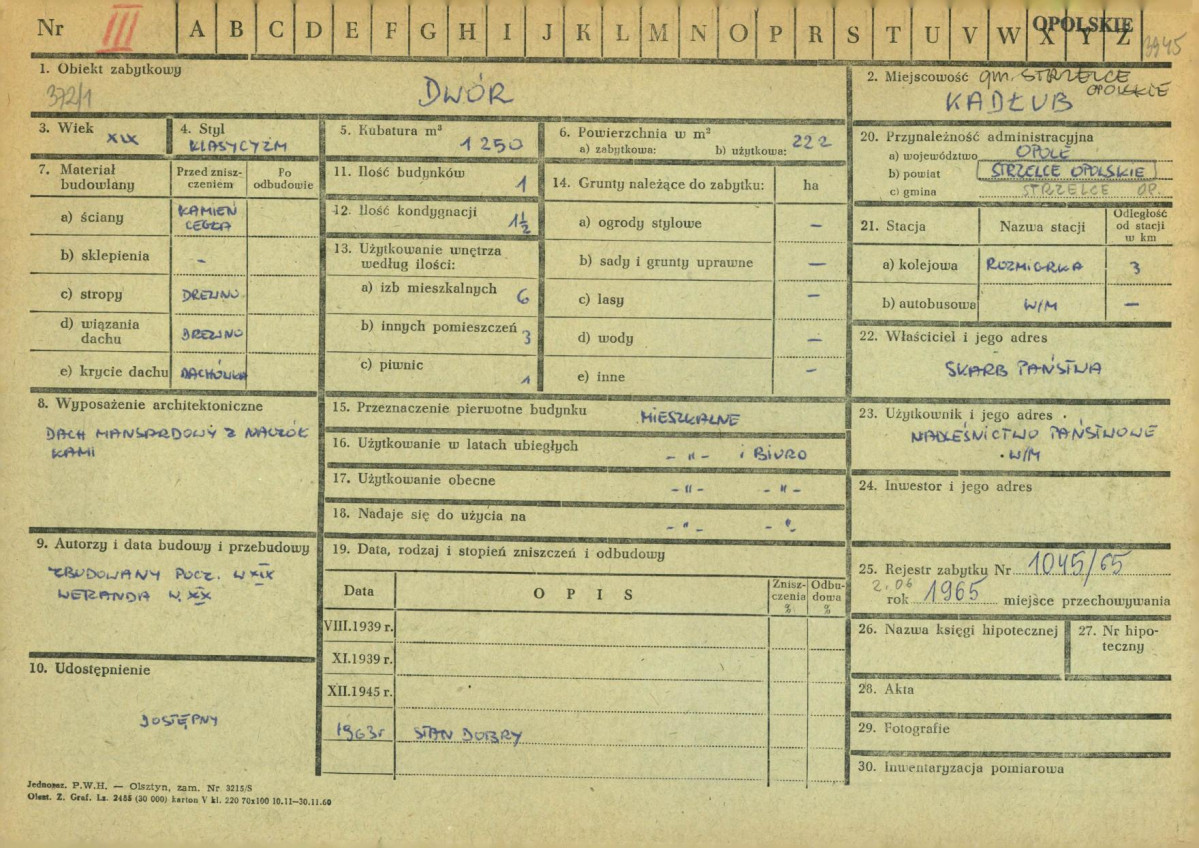 Nr III A B C D E F G H I J K L M N O P R S T U V W X Y Z OPOLSKIE 3945
1. Obiekt zabytkowy
372/1
DWÓR
2. Miejscowość gm. STRZELCE OPOLSKIE
KADŁUB
3. Wiek XIX
4. Styl
KLASYCYZM
5. Kubatura m³
1 250
6. Powierzchnia w m²
a) zabytkowa: b) użytkowa: 222
7. Materiał budowlany
Przed zniszczeniem
Po odbudowie
a) ściany KAMIEŃ CEGŁA
b) sklepienia –
c) stropy DREWNO
d) wiązania dachu DREWNO
e) krycie dachu DACHÓWKA
8. Wyposażenie architektoniczne
DACH MANSARDOWY Z NACZÓŁ
KAMI
9. Autorzy i data budowy i przebudowy
ZBUDOWANY POCZ. W XIX
WERANDA W. XX
10. Udostępnienie
DOSTĘPNY
11. Ilość budynków
1
12. Ilość kondygnacji
1½
13. Użytkowanie wnętrza
według ilości:
a) izb mieszkalnych 6
b) innych pomieszczeń 3
c) piwnic 1
14. Grunty należące do zabytku: ha
a) ogrody stylowe –
b) sady i grunty uprawne –
c) lasy –
d) wody –
e) inne –
15. Przeznaczenie pierwotne budynku MIESZKALNE
16. Użytkowanie w latach ubiegłych – " – i BIURO
17. Użytkowanie obecne – " – – " –
18. Nadaje się do użycia na – " – – " –
19. Data, rodzaj i stopień zniszczeń i odbudowy
Data OPIS Zniszczenia % Odbudowa %
VIII.1939 r.
XI.1939 r.
XII.1945 r.
1963r STAN DOBRY
20. Przynależność administracyjna
a) województwo OPOLE
b) powiat STRZELCE OPOLSKIE
c) gmina STRZELCE OP.
21. Stacja Nazwa stacji Odległość od stacji w km
a) kolejowa ROZMIERKA 3
b) autobusowa W/M –
22. Właściciel i jego adres
SKARB PAŃSTWA
23. Użytkownik i jego adres
NADLEŚNICTWO PAŃSTWOWE
W/M
24. Inwestor i jego adres
25. Rejestr zabytku Nr 1045/65
2.06
rok 1965 miejsce przechowywania
26. Nazwa księgi hipotecznej
27. Nr hipoteczny
28. Akta
29. Fotografie
30. Inwentaryzacja pomiarowa
Jednoraz. P.W.H. — Olsztyn, zam. Nr 3215/S
Olszt. Z. Graf. Lz. 2485 (30 000) karton V kl. 220 70x100 10.11—30.11.60